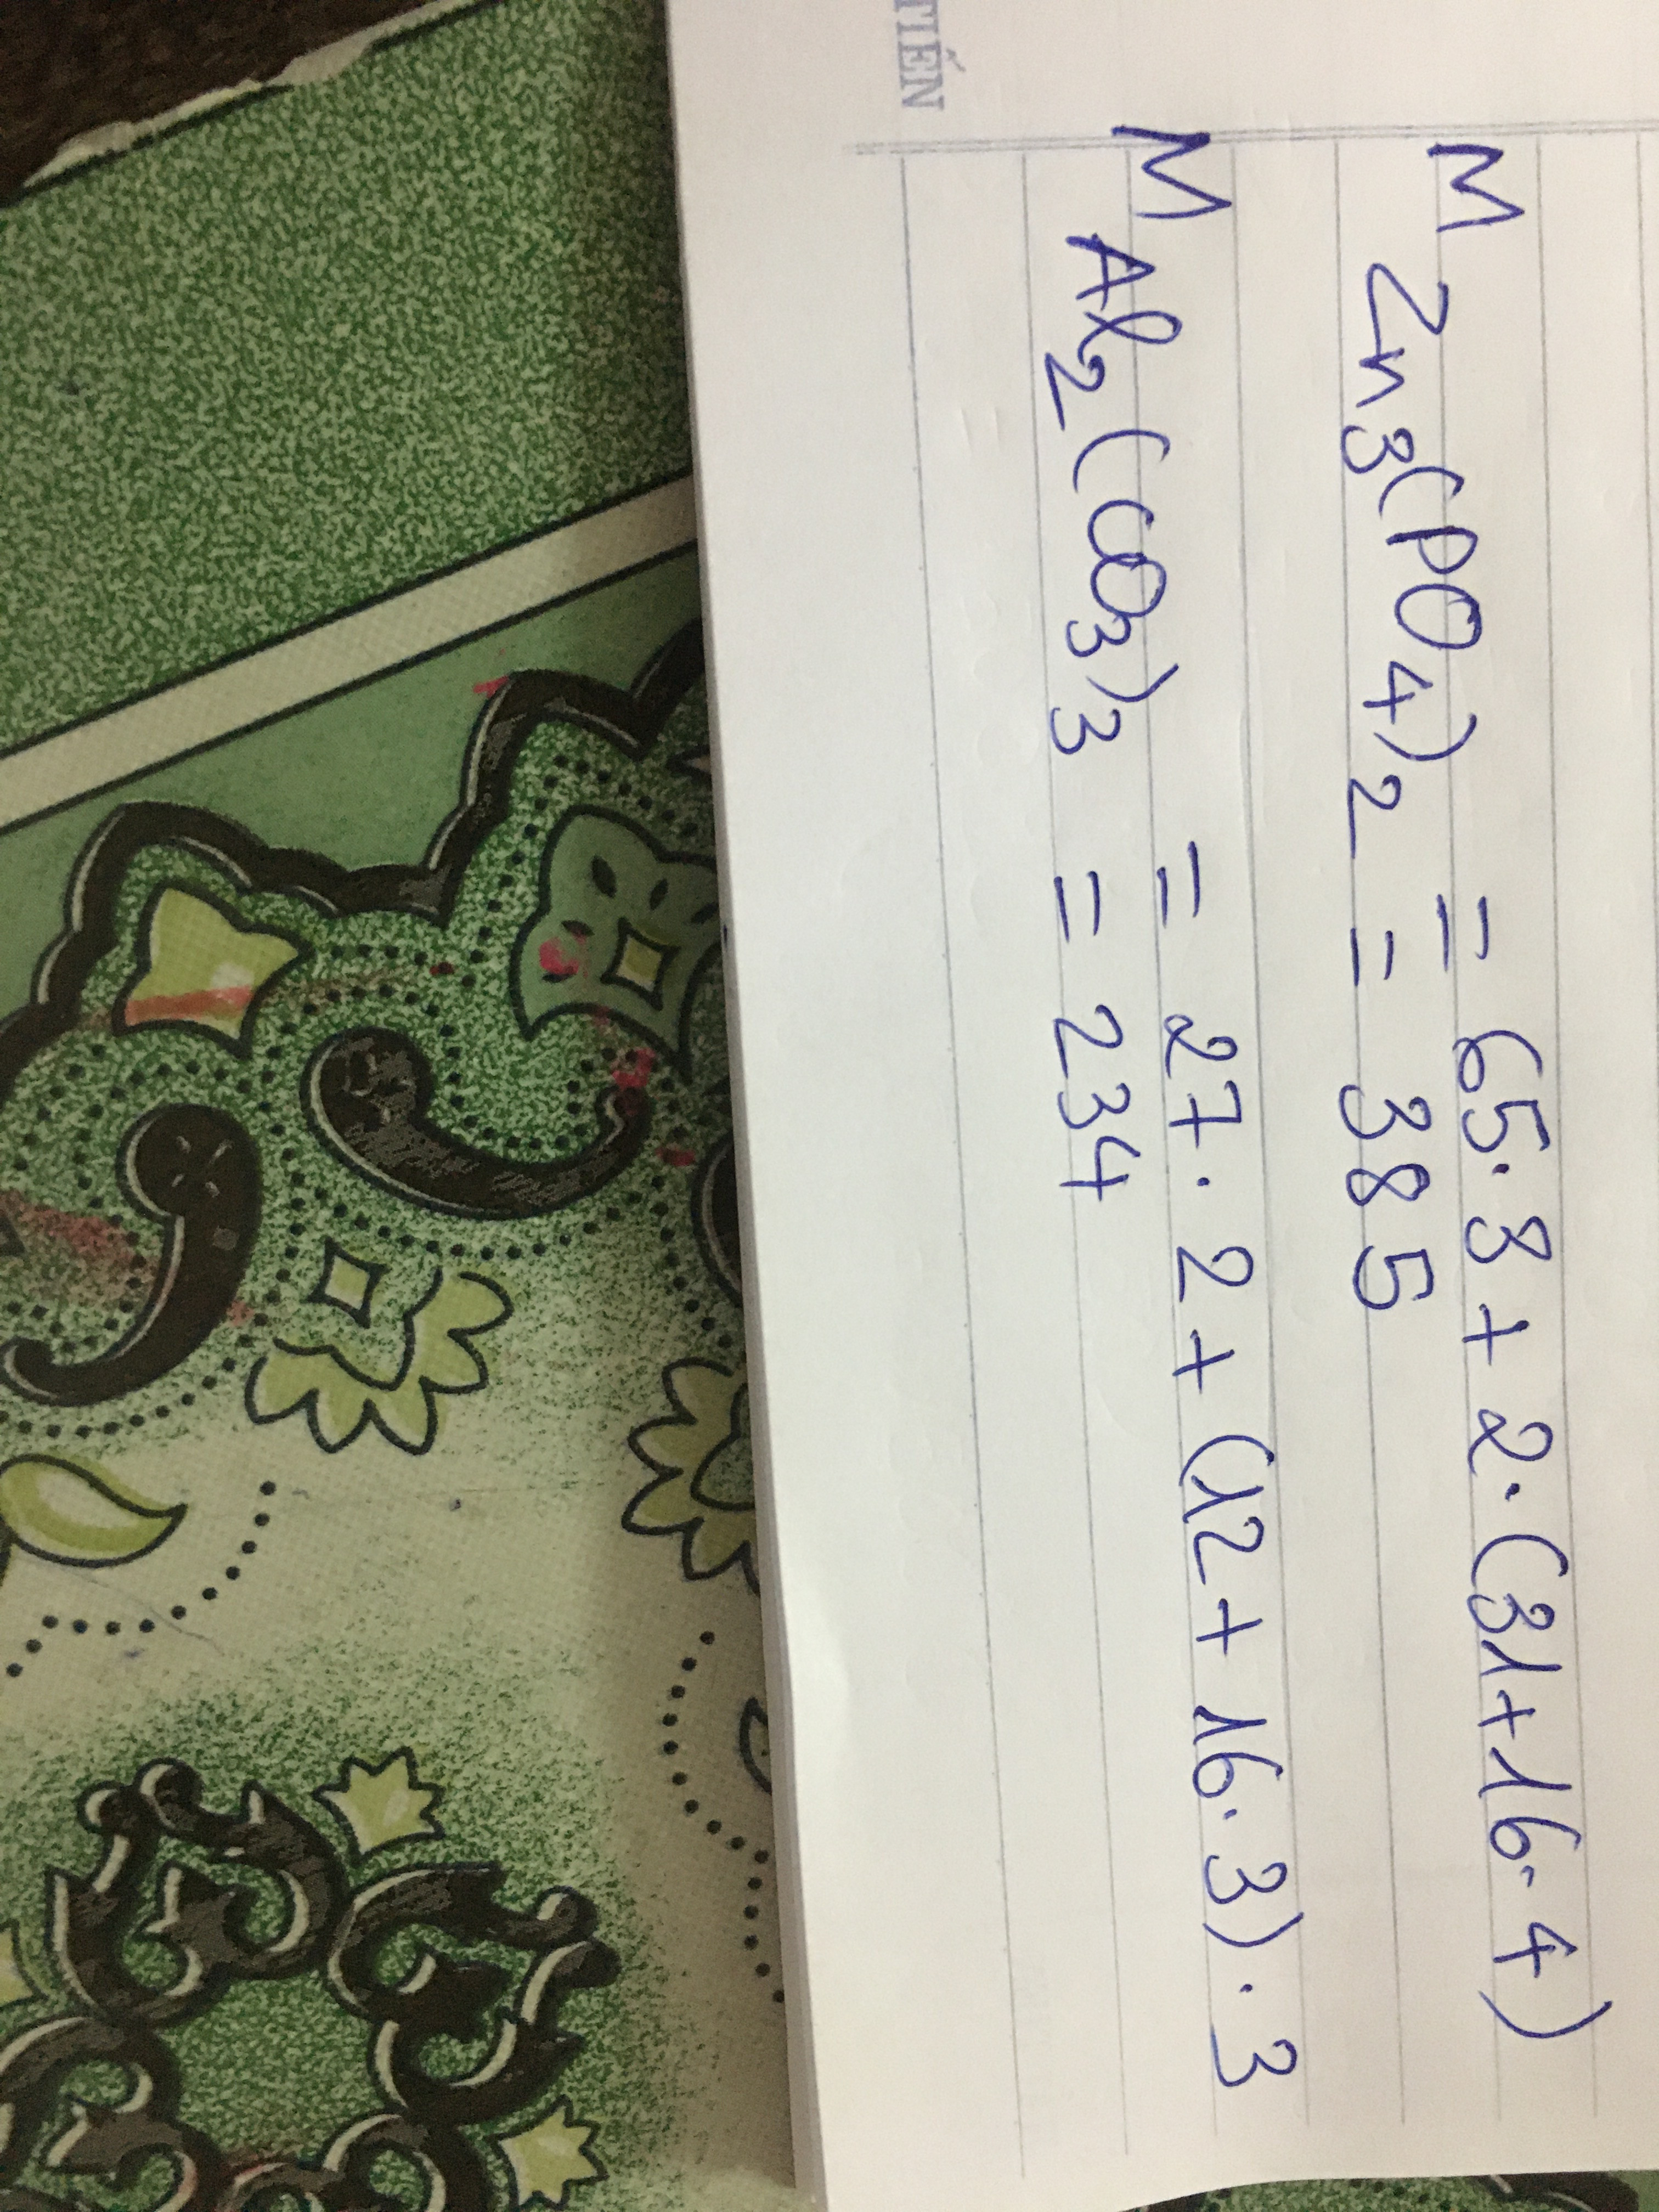 TIẾN
M Zn₃(PO₄)₂ = 65.3 + 2.(31+16.4)
= 385
M Al₂(CO₃)₃ = 27.2 + (12 + 16.3).3
= 234